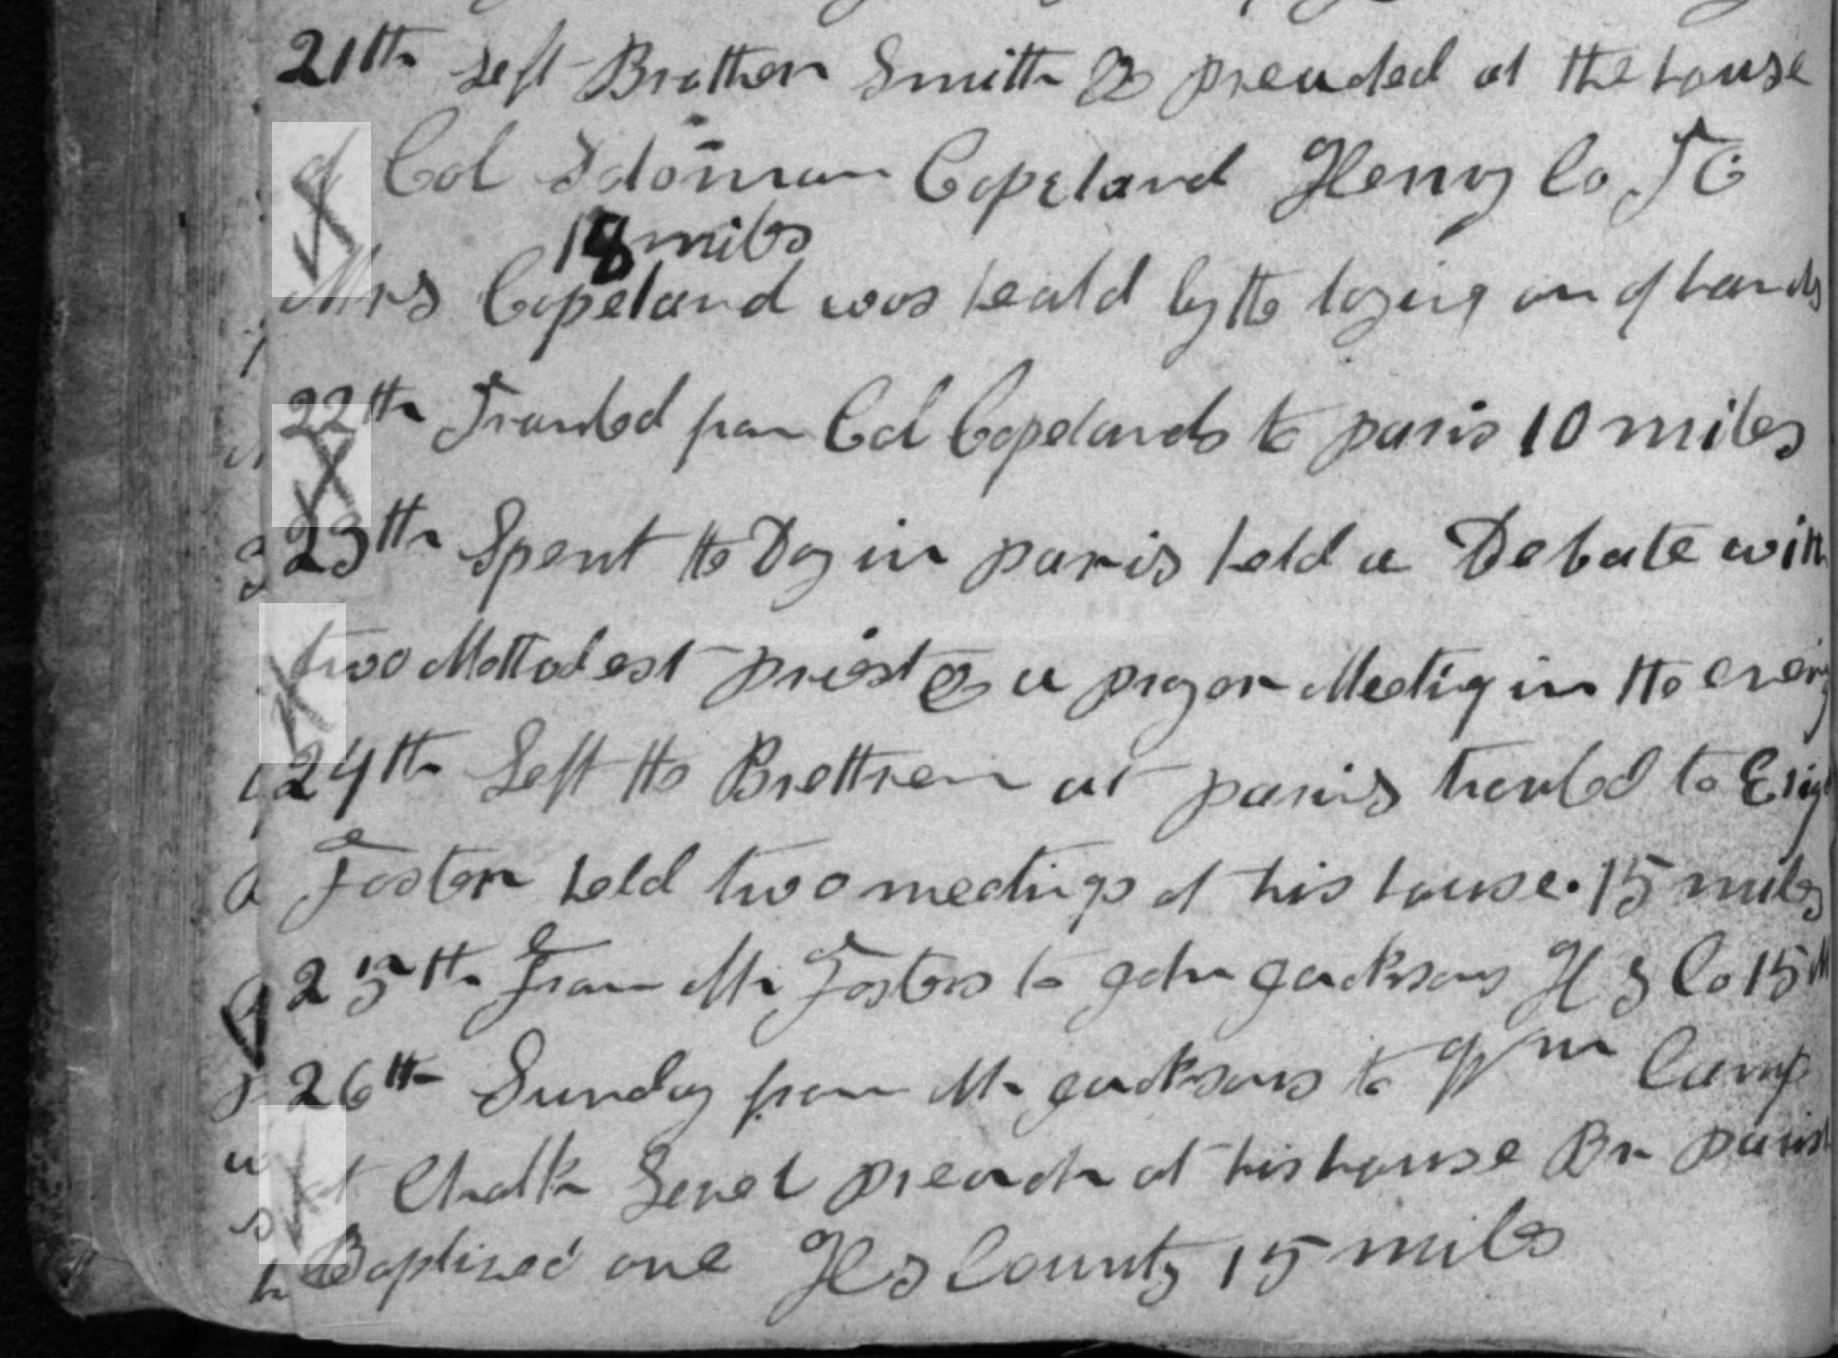 21th Left Brother Smith & preached at the house
of Col Solomon Copeland Henry Co TE
18 miles
Mrs Copeland was heald by the laying on of hands
22th Traveled from Col Copelands to paris 10 miles
23th Spent the Day in paris held a Debate with
two Mothodest priest & a prayer Meeting in the
24th Left the Brethren at paris traveled to
Foster held two meetings at his house. 15 miles
25th From Mr Fosters to John Jacksons H S Co 15 M
26th Sunday from Mr Jacksons to Wm Camp
at Chalk Level preach at his house Br
Baptized one H S County 15 miles